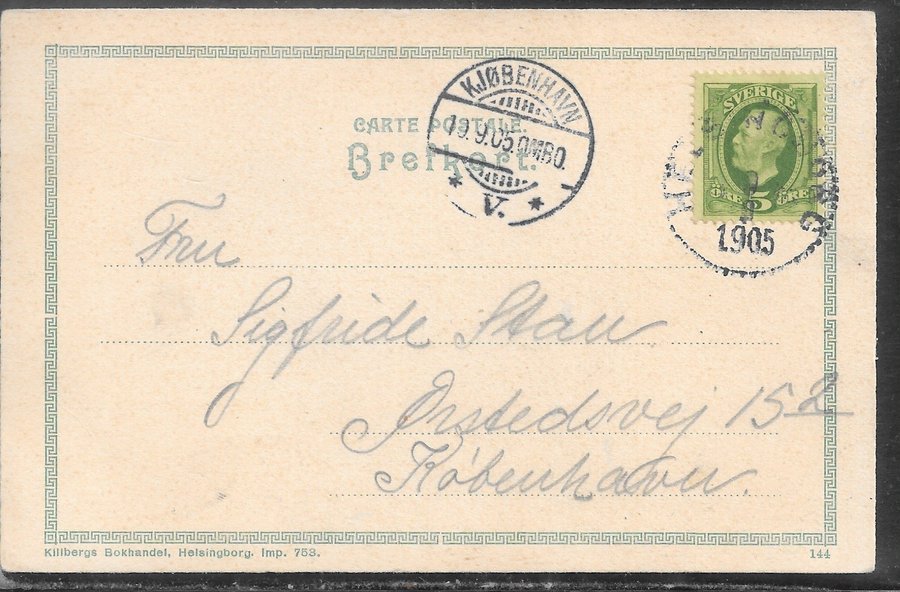 KJØBENHAVN
19.9.05.OMB0.
V.
SVERIGE
5
ÖRE ÖRE
HELSINGBORG
1905
CARTE POSTALE.
Brefkort.
Fru
Sigfride Stau
Ørstedsvej 15 2
København.
Killbergs Bokhandel, Helsingborg. Imp. 753.
144